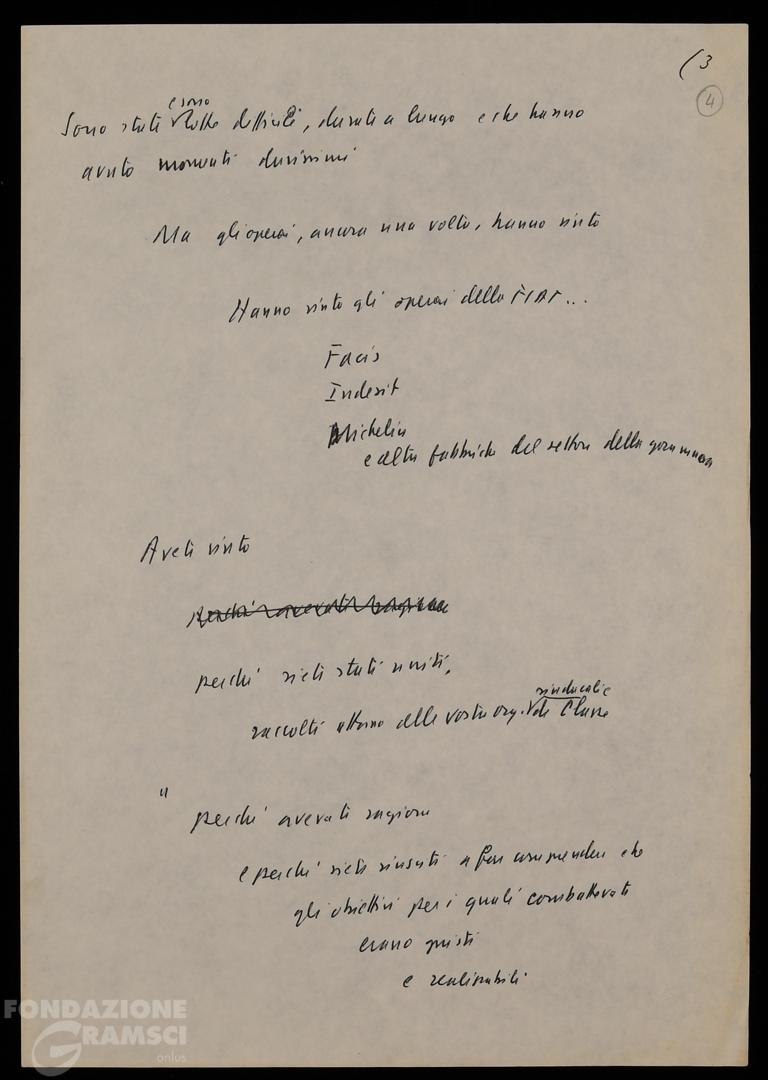 (3
4
e sono
Sono state lotte difficili, durate a lungo e che hanno
avuto momenti durissimi
Ma gli operai, ancora una volta, hanno vinto
Hanno vinto gli operai della FIAT...
Facis
Indesit
Michelin
e altre fabbriche del settore della gomma
Avete vinto
perché avevate ragione
perché siete stati uniti,
sindacali e
raccolti attorno alle vostre org. di classe
" perché avevate ragione
e perché siete riusciti a far comprendere che
gli obiettivi per i quali combattevate
erano giusti
e realizzabili
FONDAZIONE
GRAMSCI
onlus